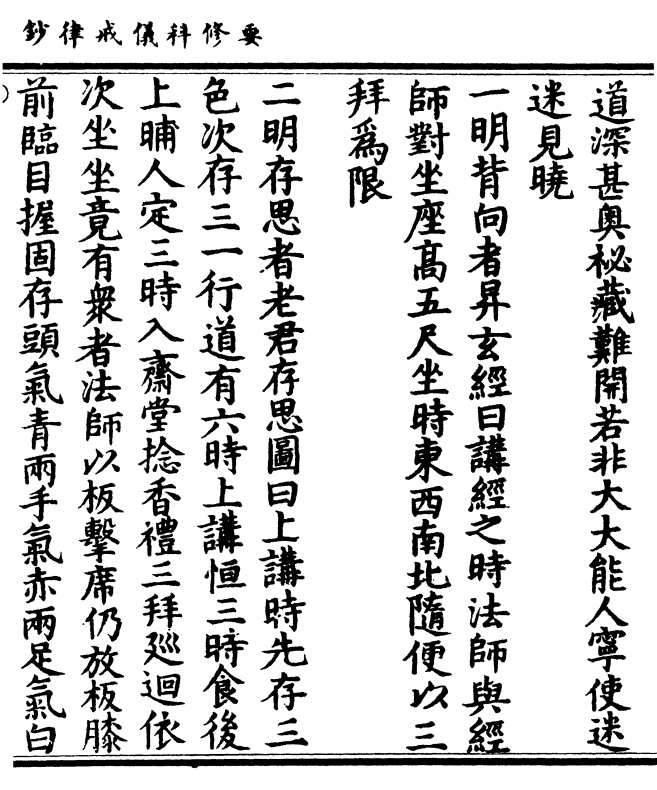 要修科儀戒律鈔
道深甚奧秘藏難開若非大大能人寧使迷
迷見曉
一明背向者昇玄經曰講經之時法師與經
師對坐座高五尺坐時東西南北隨便以三
拜爲限
二明存思者老君存思圖曰上講時先存三
色次存三一行道有六時上講恒三時食後
上晡人定三時入齋堂捻香禮三拜廵迴依
次坐坐竟有衆者法師以板擊席仍放板膝
前臨目握固存頭氣青兩手氣赤兩足氣白